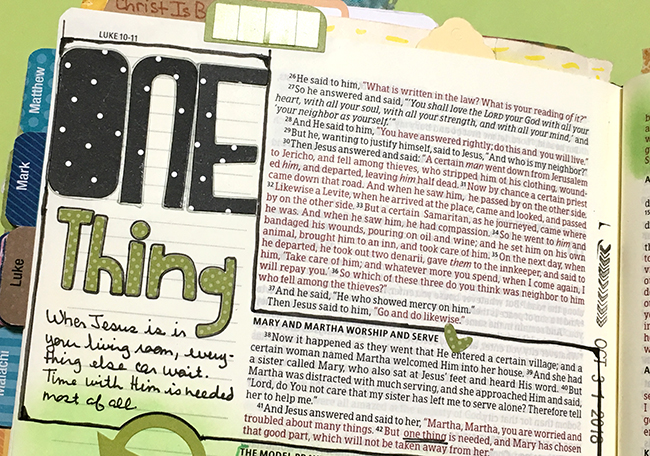 Christ Is B
LUKE 10-11
ONE
Thing
When Jesus is in
your living room, every-
thing else can wait.
Time with Him is needed
most of all
Matthew
Mark
Luke
Malachi
26 He said to him, "What is written in the law? What is your reading of it?"
27 So he answered and said, "'You shall love the LORD your God with all your
heart, with all your soul, with all your strength, and with all your mind,' and
'your neighbor as yourself.'"
28 And He said to him, "You have answered rightly; do this and you will live."
29 But he, wanting to justify himself, said to Jesus, "And who is my neighbor?"
30 Then Jesus answered and said: "A certain man went down from Jerusalem
to Jericho, and fell among thieves, who stripped him of his clothing, wound-
ed him, and departed, leaving him half dead. 31 Now by chance a certain priest
came down that road. And when he saw him, he passed by on the other side.
32 Likewise a Levite, when he arrived at the place, came and looked, and passed
by on the other side. 33 But a certain Samaritan, as he journeyed, came where
he was. And when he saw him, he had compassion. 34 So he went to him and
bandaged his wounds, pouring on oil and wine; and he set him on his own
animal, brought him to an inn, and took care of him. 35 On the next day, when
he departed, he took out two denarii, gave them to the innkeeper, and said to
him, 'Take care of him; and whatever more you spend, when I come again, I
will repay you.' 36 So which of these three do you think was neighbor to him
who fell among the thieves?"
37 And he said, "He who showed mercy on him."
Then Jesus said to him, "Go and do likewise."
MARY AND MARTHA WORSHIP AND SERVE
38 Now it happened as they went that He entered a certain village; and a
certain woman named Martha welcomed Him into her house. 39 And she had
a sister called Mary, who also sat at Jesus' feet and heard His word. 40 But
Martha was distracted with much serving, and she approached Him and said,
"Lord, do You not care that my sister has left me to serve alone? Therefore tell
her to help me."
41 And Jesus answered and said to her, "Martha, Martha, you are worried and
troubled about many things. 42 But one thing is needed, and Mary has chosen
that good part, which will not be taken away from her."
OCT 31 2018